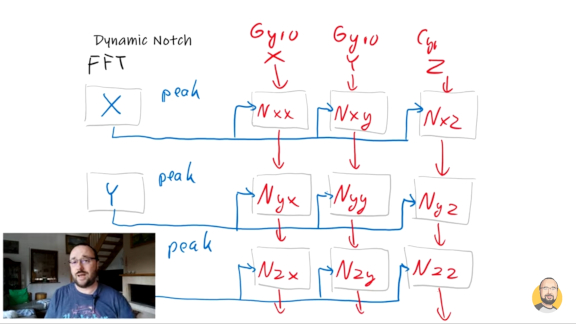 Dynamic Notch
FFT
Gyro Gyro Gyr
X Y Z
peak
X Nxx Nxy Nxz
peak
Y Nyx Nyy Nyz
peak
Nzx Nzy Nzz